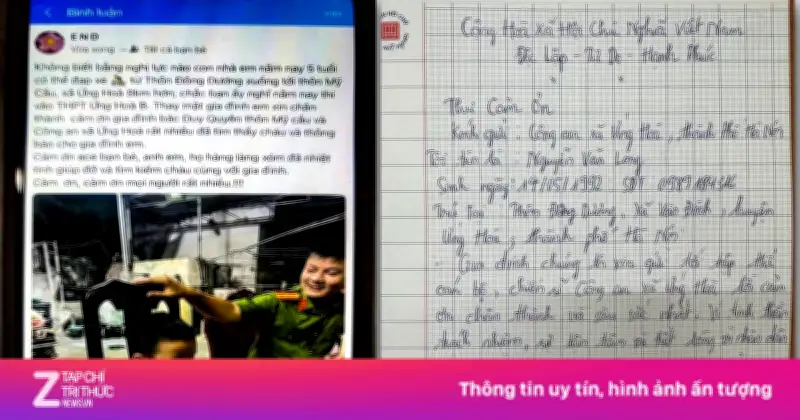 Bình luận
E N D
Vừa xong · Tất cả bạn bè
Không biết bằng nghị lực nào con nhà em năm nay 5 tuổi
có thể đạp xe từ Thôn Đông Dương xuống tới thôn Mỹ
Cầu, xã Ứng Hoà 8km hơn, chắc bạn ấy nghĩ năm nay thi
vào THPT Ứng Hoà B. Thay mặt gia đình em xin chân
thành cảm ơn gia đình bác Duy Quyền thôn Mỹ cầu và
Công an xã Ứng Hoà rất nhiều đã tìm thấy cháu và thông
báo cho gia đình em.
Cảm ơn ace bạn bè, anh em, họ hàng làng xóm đã nhiệt
tình giúp đỡ và tìm kiếm cháu cùng với gia đình.
Cảm ơn, cảm ơn mọi người rất nhiều.!!!
Cộng Hoà Xã Hội Chủ Nghĩa Việt Nam
Độc Lập - Tự Do - Hạnh Phúc
Thư Cảm Ơn
Kính gửi: Công an xã Ứng Hoà, thành Phố Hà Nội
Tôi tên là: Nguyễn Văn Long
Sinh ngày: 19/05/1992 SĐT
Trú tại: Thôn Đông Dương, Xã
Ứng Hoà, thành phố Hà Nội
- Gia đình chúng tôi xin gửi tới tập thể
cán bộ, chiến sĩ Công an xã Ứng Hoà lời cảm
ơn chân thành và sâu sắc nhất, vì tinh thần
trách nhiệm, sự tận tâm và hết lòng vì nhân dân
Z TẠP CHÍ
TRI THỨC
NEWS.VN
Thông tin uy tín, hình ảnh ấn tượng